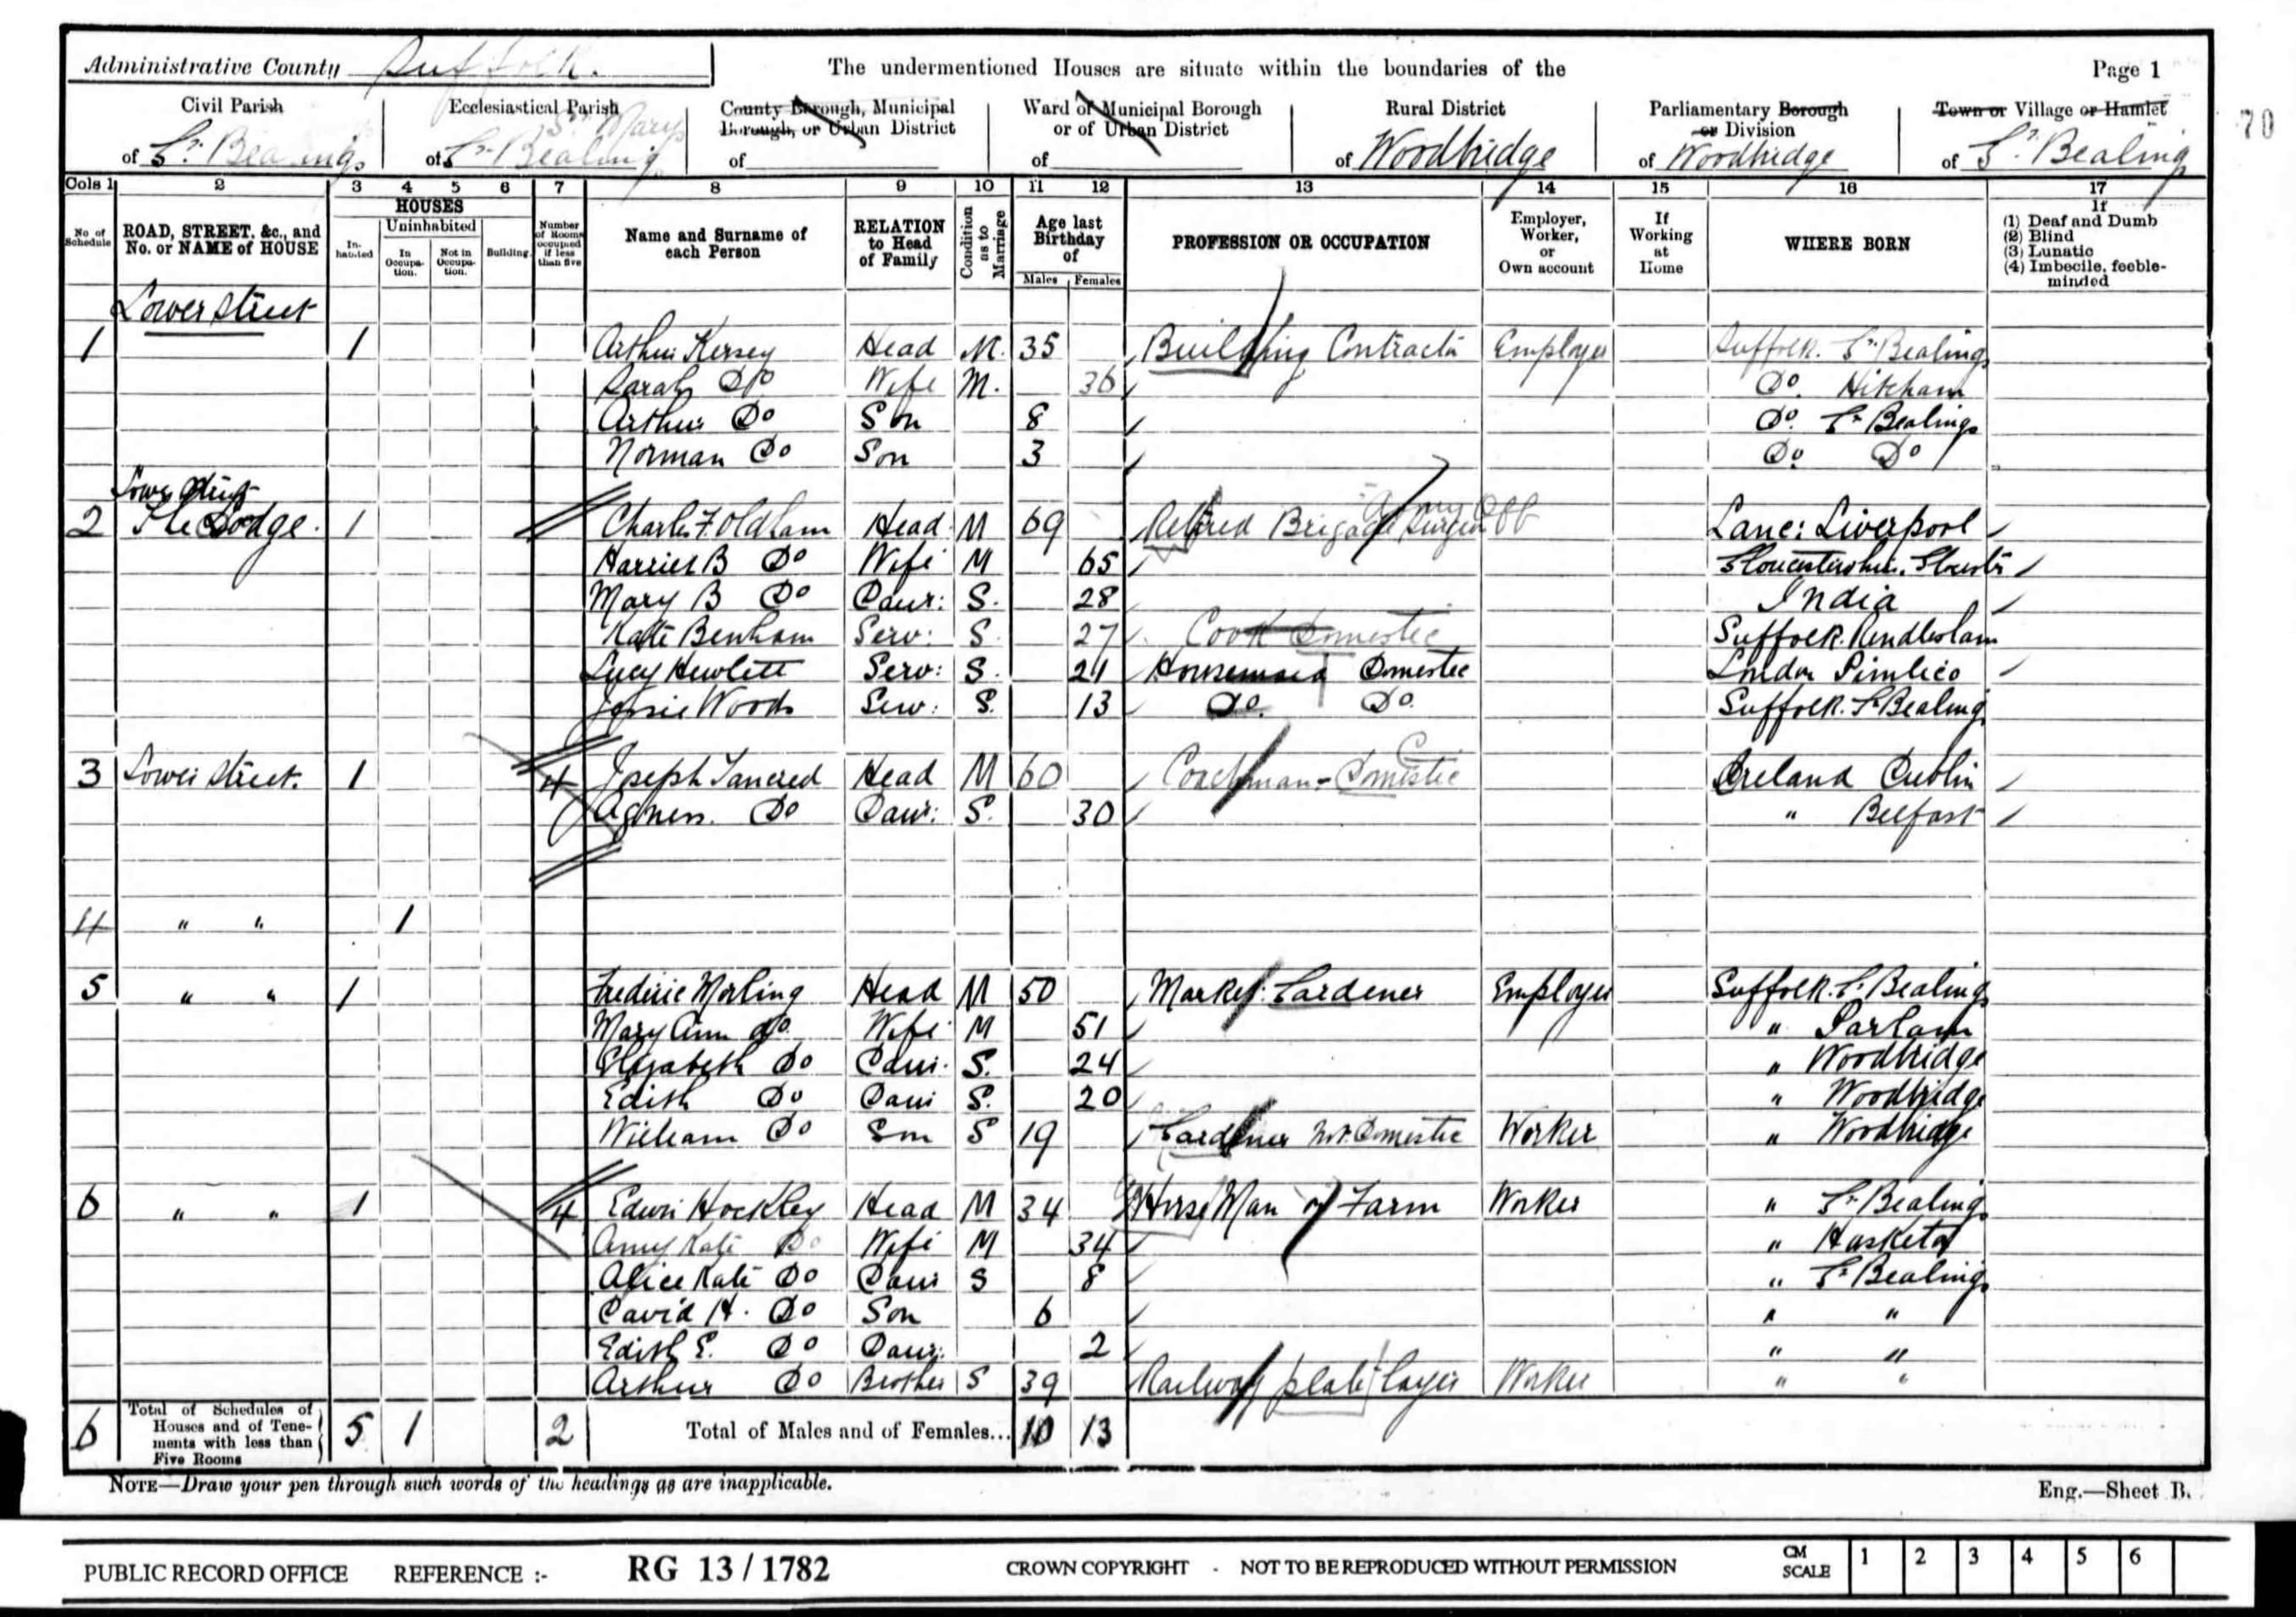 Administrative County Suffolk. The undermentioned Houses are situate within the boundaries of the Page 1
Civil Parish Ecclesiastical Parish County Borough, Municipal Borough, or Urban District Ward of Municipal Borough or of Urban District Rural District Parliamentary Borough or Division Town or Village or Hamlet
70
of Gt. Bealings of St Mary Gt. Bealing of of of Woodbridge of Woodbridge of Gt. Bealing
Cols 1 2 3 4 5 6 7 8 9 10 11 12 13 14 15 16 17
No of Schedule ROAD, STREET, &c., and No. or NAME of HOUSE HOUSES Inhabited Uninhabited In Occupation. Not in Occupation. Building Number of Rooms occupied if less than five Name and Surname of each Person RELATION to Head of Family Condition as to Marriage Age last Birthday of Males Females PROFESSION OR OCCUPATION Employer, Worker, or Own account If Working at Home WHERE BORN If (1) Deaf and Dumb (2) Blind (3) Lunatic (4) Imbecile, feeble-minded
Lower Street
1 1 Arthur Kersey Head M. 35 Building Contractor Employer Suffolk. Gt. Bealings
Sarah Do Wife M. 36 Do. Hitcham
Arthur Do Son 8 Do. Gt. Bealings
Norman Do Son 3 Do. Do
Lower Street
2 The Lodge. 1 Charles F. Oldham Head M 69 Retired Brigade Surgeon Army Off Lanc: Liverpool
Harriet B Do Wife M 65 Gloucestershire.
Mary B Do Daur: S. 28 India
Kate Benham Serv: S. 27 Cook Domestic Suffolk. Rendlesham
Lucy Hewlett Serv: S. 21 Housemaid Domestic London Pimlico
Jessie Woods Serv: S. 13 Do. Do. Suffolk. Gt. Bealings
3 Lower Street. 1 4 Joseph Tancred Head M 60 Coachman - Domestic Ireland Dublin
Agness. Do Daur: S. 30 " Belfast
4 " " 1
5 " " 1 Frederic Morling Head M 50 Market Gardener Employer Suffolk. Gt. Bealings
Mary Ann do. Wife M 51 " Parham
Elizabeth Do Daur. S. 24 " Woodbridge
Edith Do Daur S. 20 " Woodbridge
William Do Son S 19 Gardener not Domestic Worker " Woodbridge
6 " " 1 4 Edwin Hockley Head M 34 Horse Man on Farm Worker " Gt. Bealings
Amy Kate Do Wife M 34 " Hasketon
Alice Kate Do Daur S 8 " Gt. Bealings
David H. Do Son 6 " "
Edith E. Do Daur: 2 " "
Arthur Do Brother S 39 Railway plate layer Worker " "
6 Total of Schedules of Houses and of Tenements with less than Five Rooms 5 1 2 Total of Males and of Females... 10 13
NOTE—Draw your pen through such words of the headings as are inapplicable. Eng.—Sheet B.
PUBLIC RECORD OFFICE REFERENCE :- RG 13 / 1782 CROWN COPYRIGHT - NOT TO BE REPRODUCED WITHOUT PERMISSION CM SCALE 1 2 3 4 5 6